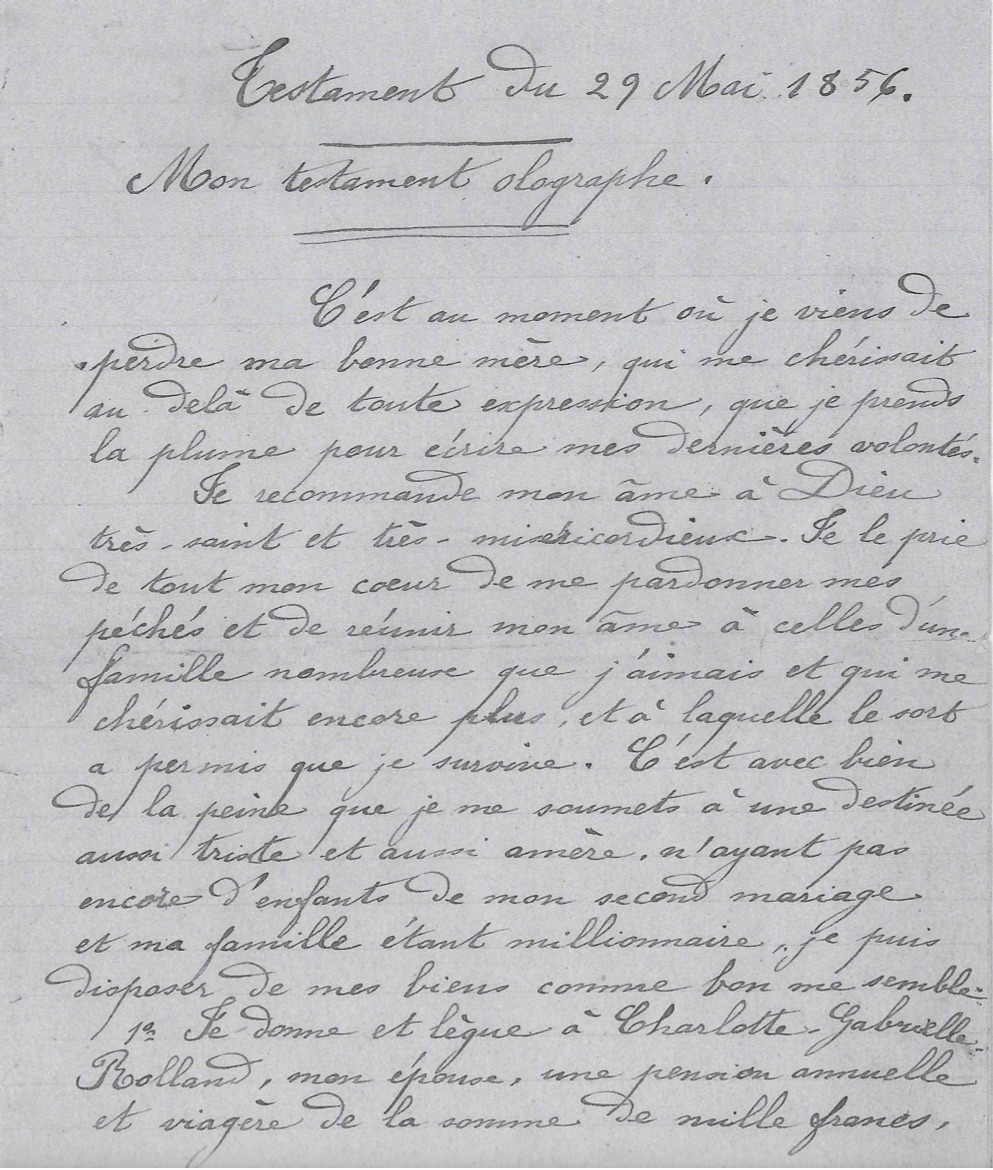 Testament du 29 Mai 1856.
Mon testament olographe.
C'est au moment où je viens de
perdre ma bonne mère, qui me chérissait
au delà de toute expression, que je prends
la plume pour écrire mes dernières volontés.
Je recommande mon âme à Dieu
très-saint et très-miséricordieux. Je le prie
de tout mon coeur de me pardonner mes
péchés et de réunir mon âme à celles d'une
famille nombreuse que j'aimais et qui me
chérissait encore plus, et à laquelle le sort
a permis que je survive. C'est avec bien
de la peine que je me soumets à une destinée
aussi triste et aussi amère. n'ayant pas
encore d'enfants de mon second mariage
et ma famille étant millionnaire, je puis
disposer de mes biens comme bon me semble:
1º Je donne et lègue à Charlotte-Gabrielle-
Rolland, mon épouse, une pension annuelle
et viagère de la somme de mille francs,